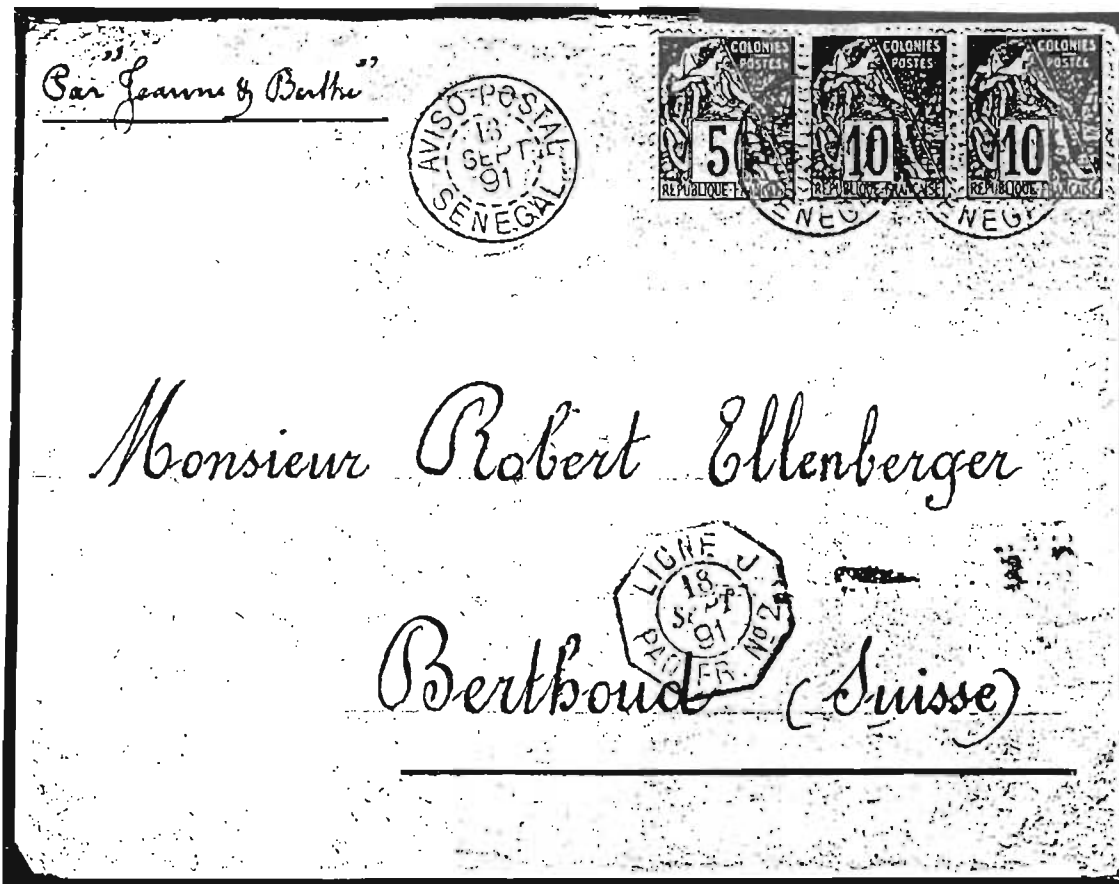 Par "Jeanne & Berthe"
AVISO-POSTAL
13
SEPT
91
SENEGAL
COLONIES
POSTES
5
REPUBLIQUE-FRANCAISE
COLONIES
POSTES
10
REPUBLIQUE-FRANCAISE
COLONIES
POSTES
10
REPUBLIQUE-FRANCAISE
SENEGAL
SENEGAL
Monsieur Robert Ellenberger
LIGNE J
18
SEPT
91
PAQ. FR. No 2
Berthoud (Suisse)